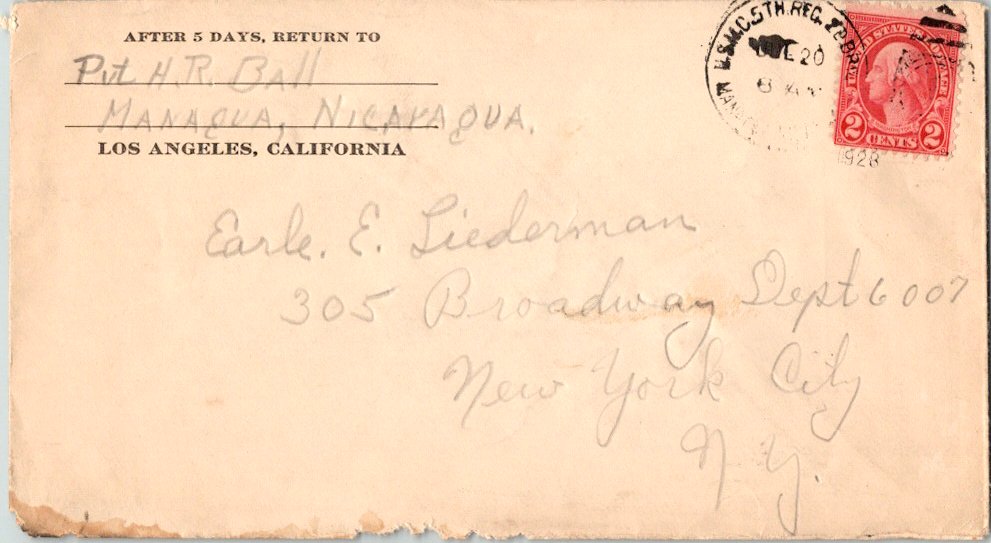 AFTER 5 DAYS, RETURN TO
Pvt H.R. Ball
MANAGUA, NICARAGUA.
LOS ANGELES, CALIFORNIA
U.S.M.C. 5TH. REG.
20
1928
UNITED STATES POSTAGE
2 CENTS 2
Earle. E. Liederman
305 Broadway Dept 6007
New York City
N.Y.